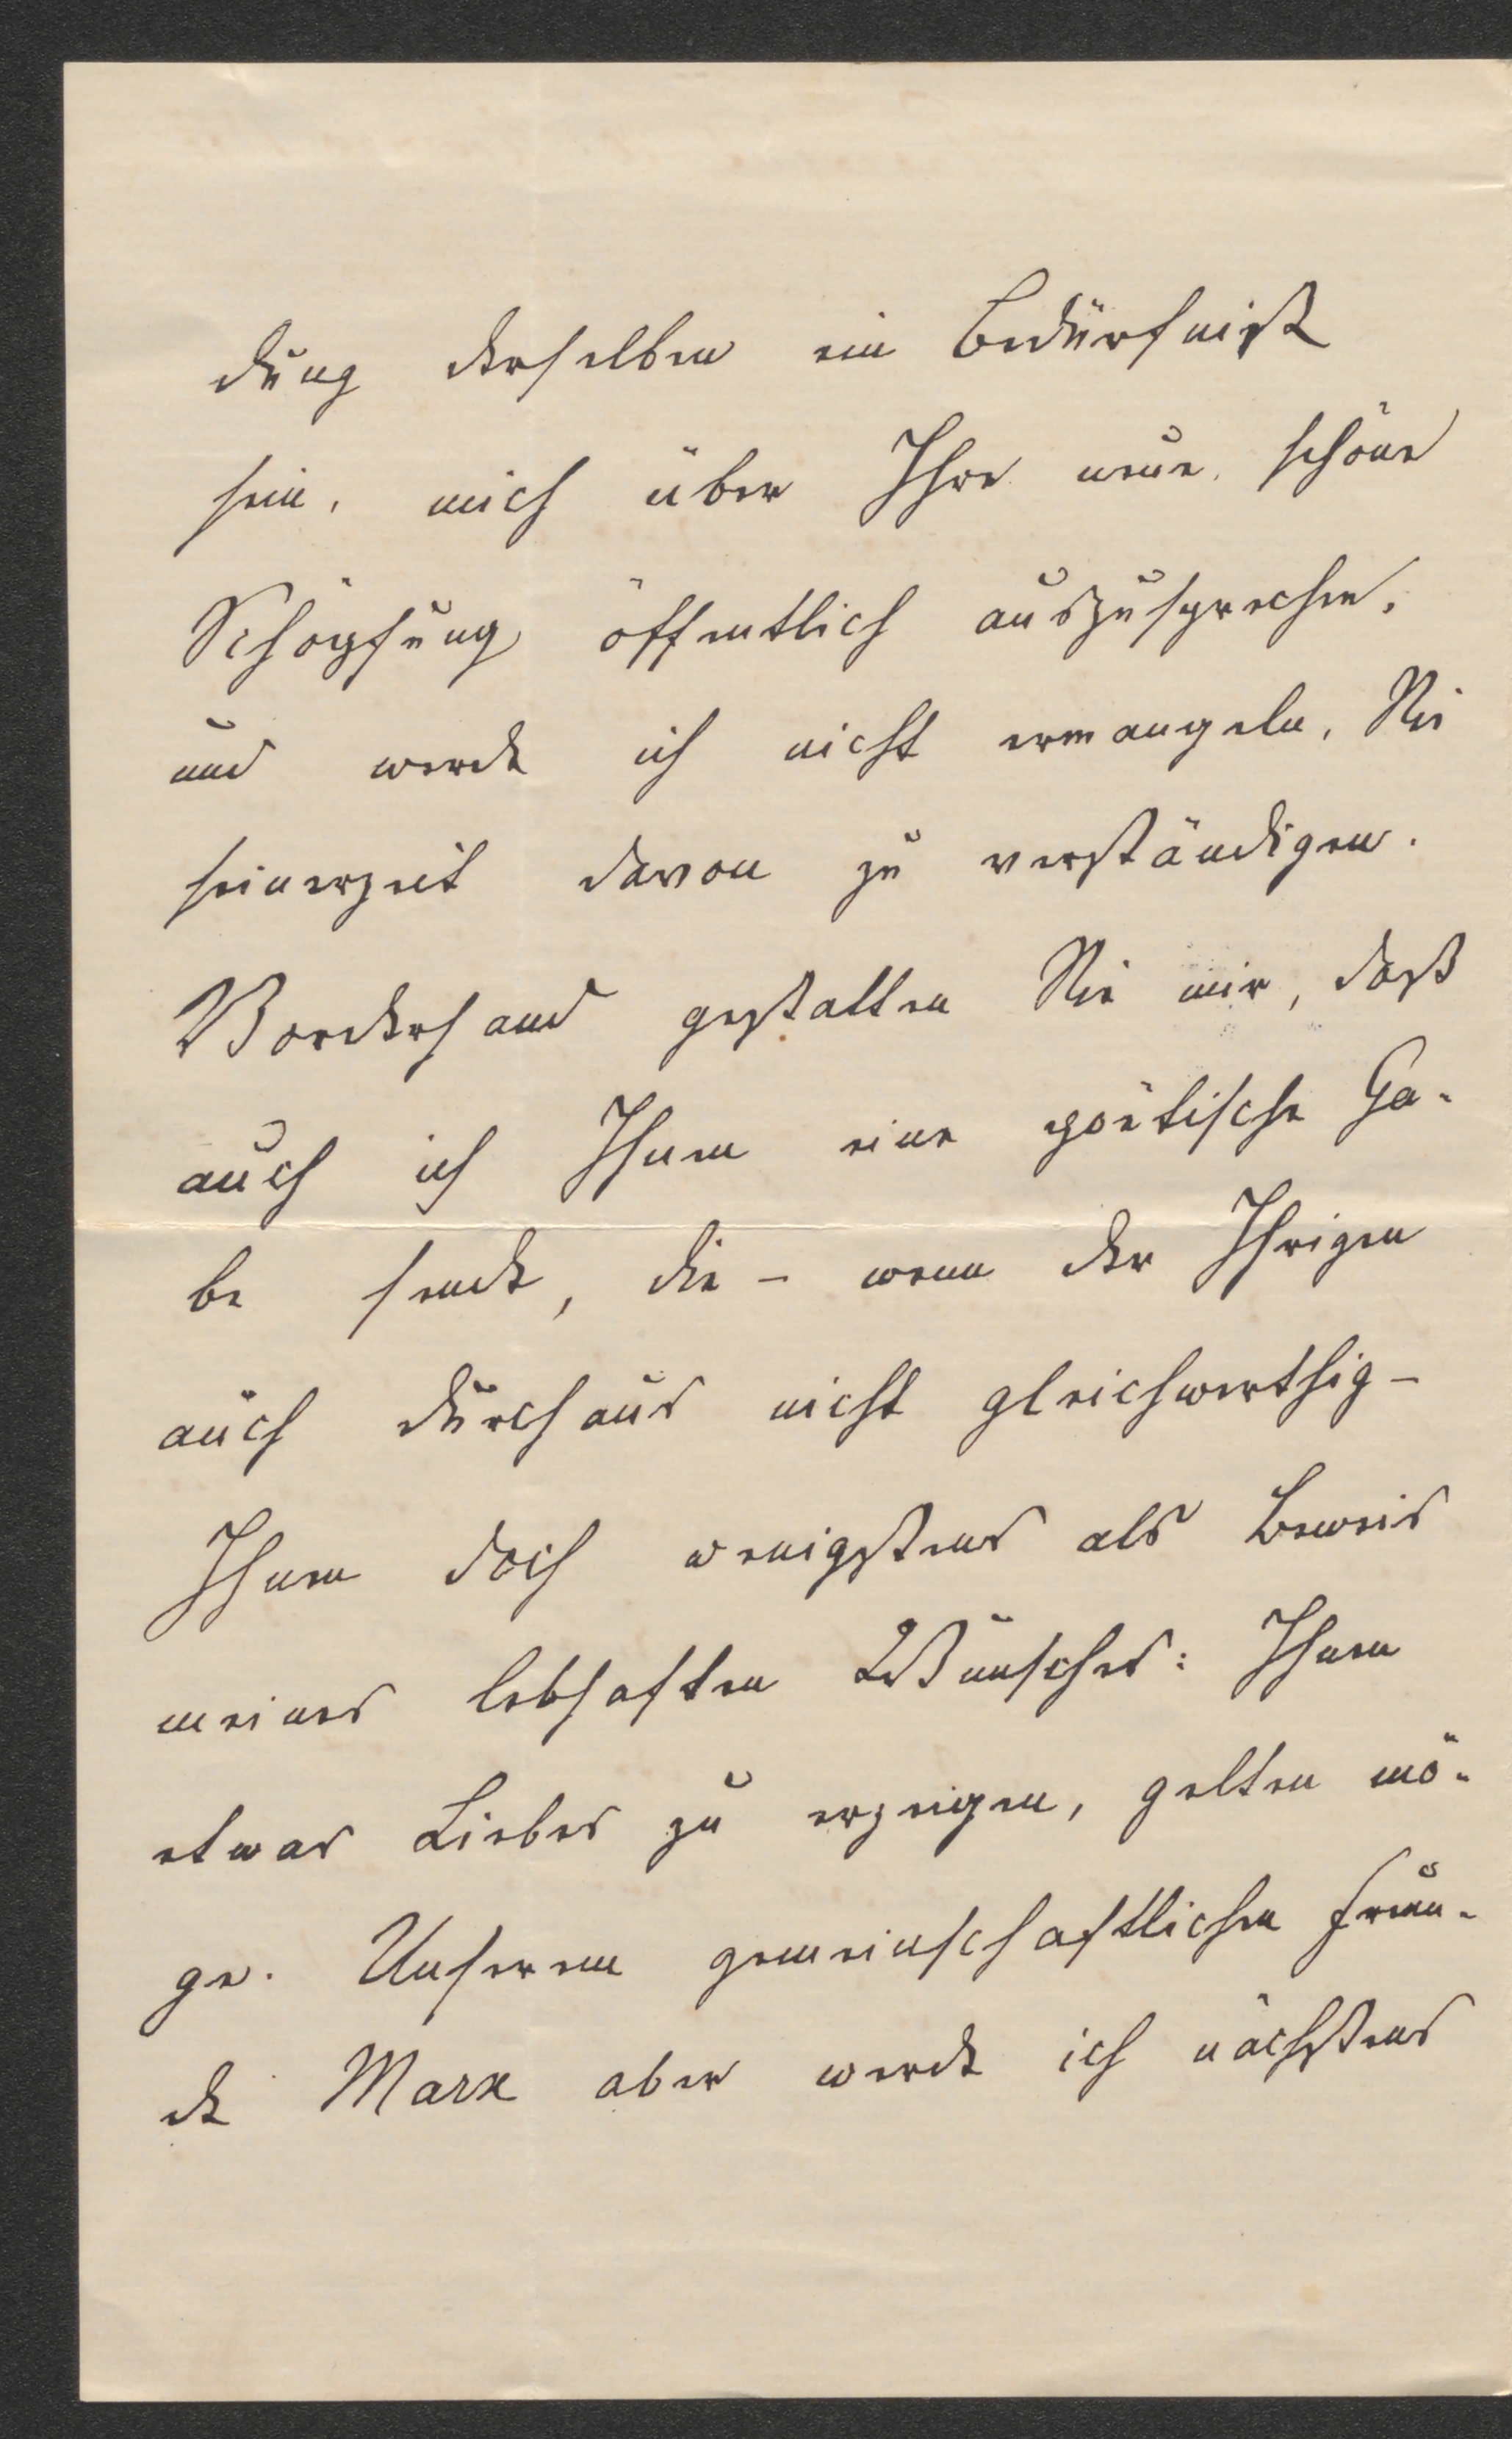 dung derselben ein Bedürfniß
sein, mich über Ihre neue, schöne
Schöpfung öffentlich auszusprechen,
und werde ich nicht ermangeln, Sie
seinerzeit davon zu verständigen.
Vorderhand gestatten Sie mir, daß
auch ich Ihnen eine poëtische Ga-
be sende, die – wenn der Ihrigen
auch durchaus nicht gleichwerthig –
Ihnen doch wenigstens als Beweis
meines lebhaften Wunsches: Ihnen
etwas Liebes zu erzeigen, gelten mö-
ge. Unserem gemeinschaftlichen Freun-
de Marx aber werde ich nächstens